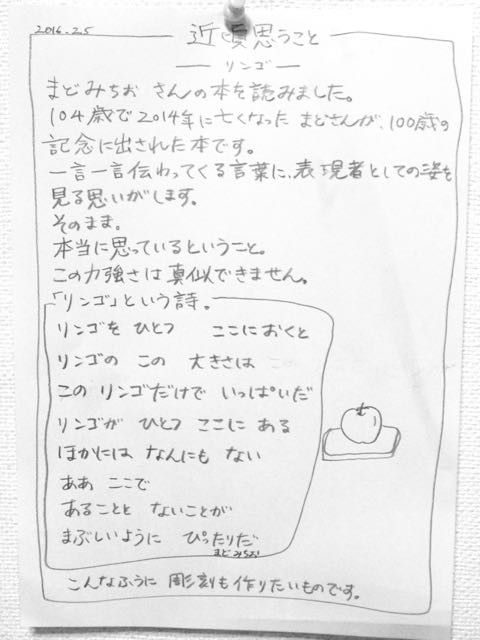 2016.2.5
近頃思うこと
リンゴ
まどみちお さんの本を読みました。
104歳で2014年に亡くなった まどさんが、100歳の
記念に出された本です。
一言一言伝わってくる言葉に、表現者としての姿を
見る思いがします。
そのまま。
本当に思っているということ。
この力強さは真似できません。
「リンゴ」という詩。
リンゴを ひとつ ここにおくと
リンゴの この 大きさは
この リンゴだけで いっぱいだ
リンゴが ひとつ ここに ある
ほかには なんにも ない
ああ ここで
あることと ないことが
まぶしいように ぴったりだ
まどみちお
こんなふうに 彫刻も作りたいものです。